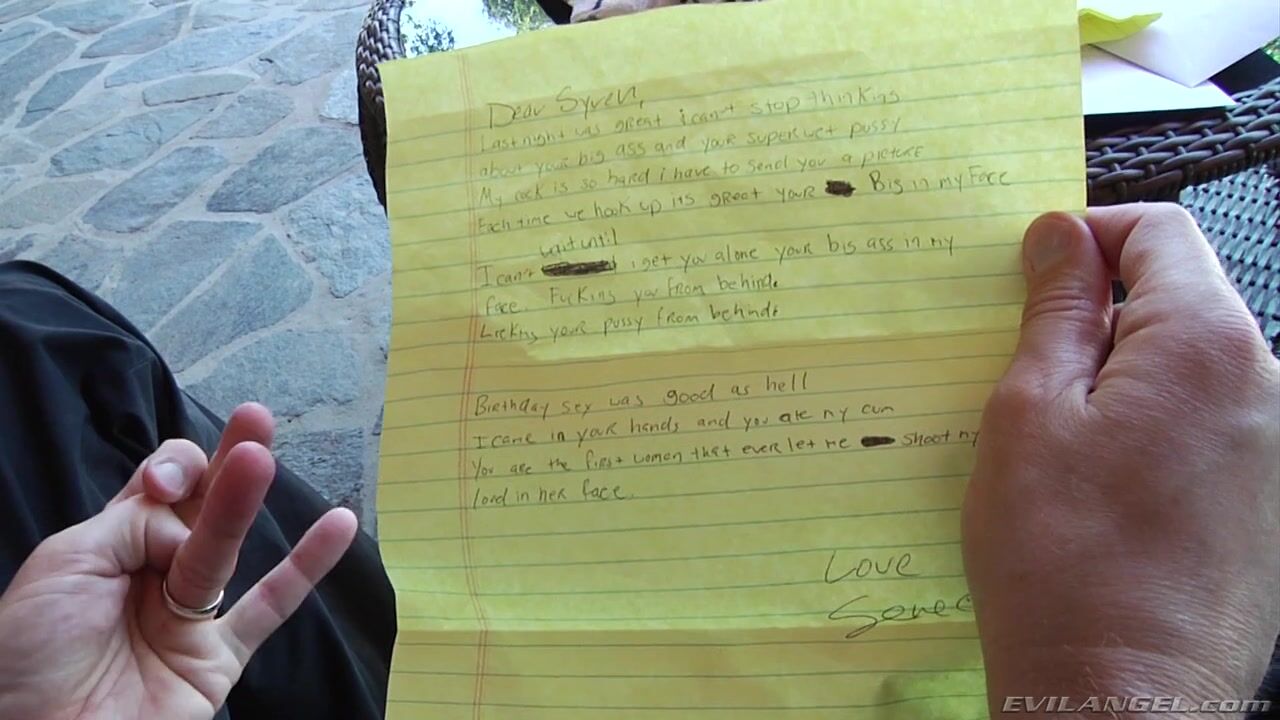 Dear Syren,
Last night was great i can't stop thinking
about your big ass and your super wet pussy
My cock is so hard i have to send you a picture
Each time we hook up its great your Big in my Face
wait until
I can't i get you alone your big ass in my
face. Fucking you from behind.
Licking your pussy from behind.
Birthday sex was good as hell
I came in your hands and you ate my cum
You are the first women that ever let me shoot my
load in her face.
Love
EVILANGEL.com